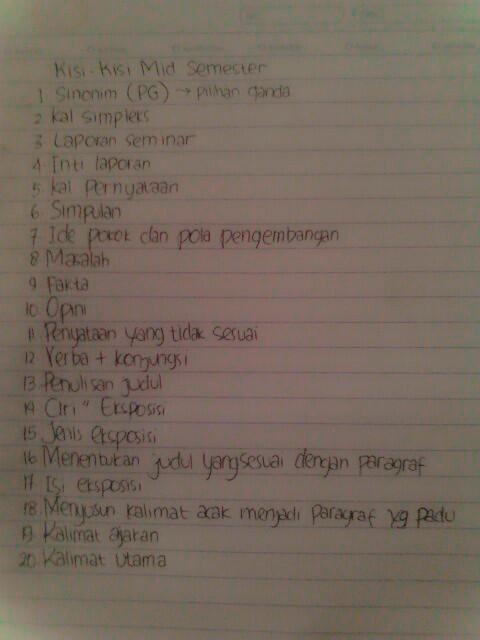 Kisi-Kisi Mid Semester
1. Sinonim (PG) → pilihan ganda
2. Kal simpleks
3. Laporan seminar
4. Inti laporan
5. Kal pernyataan
6. Simpulan
7. Ide pokok dan pola pengembangan
8. Masalah
9. Fakta
10. Opini
11. Penyataan yang tidak sesuai
12. Verba + konjungsi
13. Penulisan judul
14. Ciri" Eksposisi
15. Jenis eksposisi
16. Menentukan judul yang sesuai dengan paragraf
17. Isi eksposisi
18. Menyusun kalimat acak menjadi paragraf yg padu
19. Kalimat ajakan
20. Kalimat utama